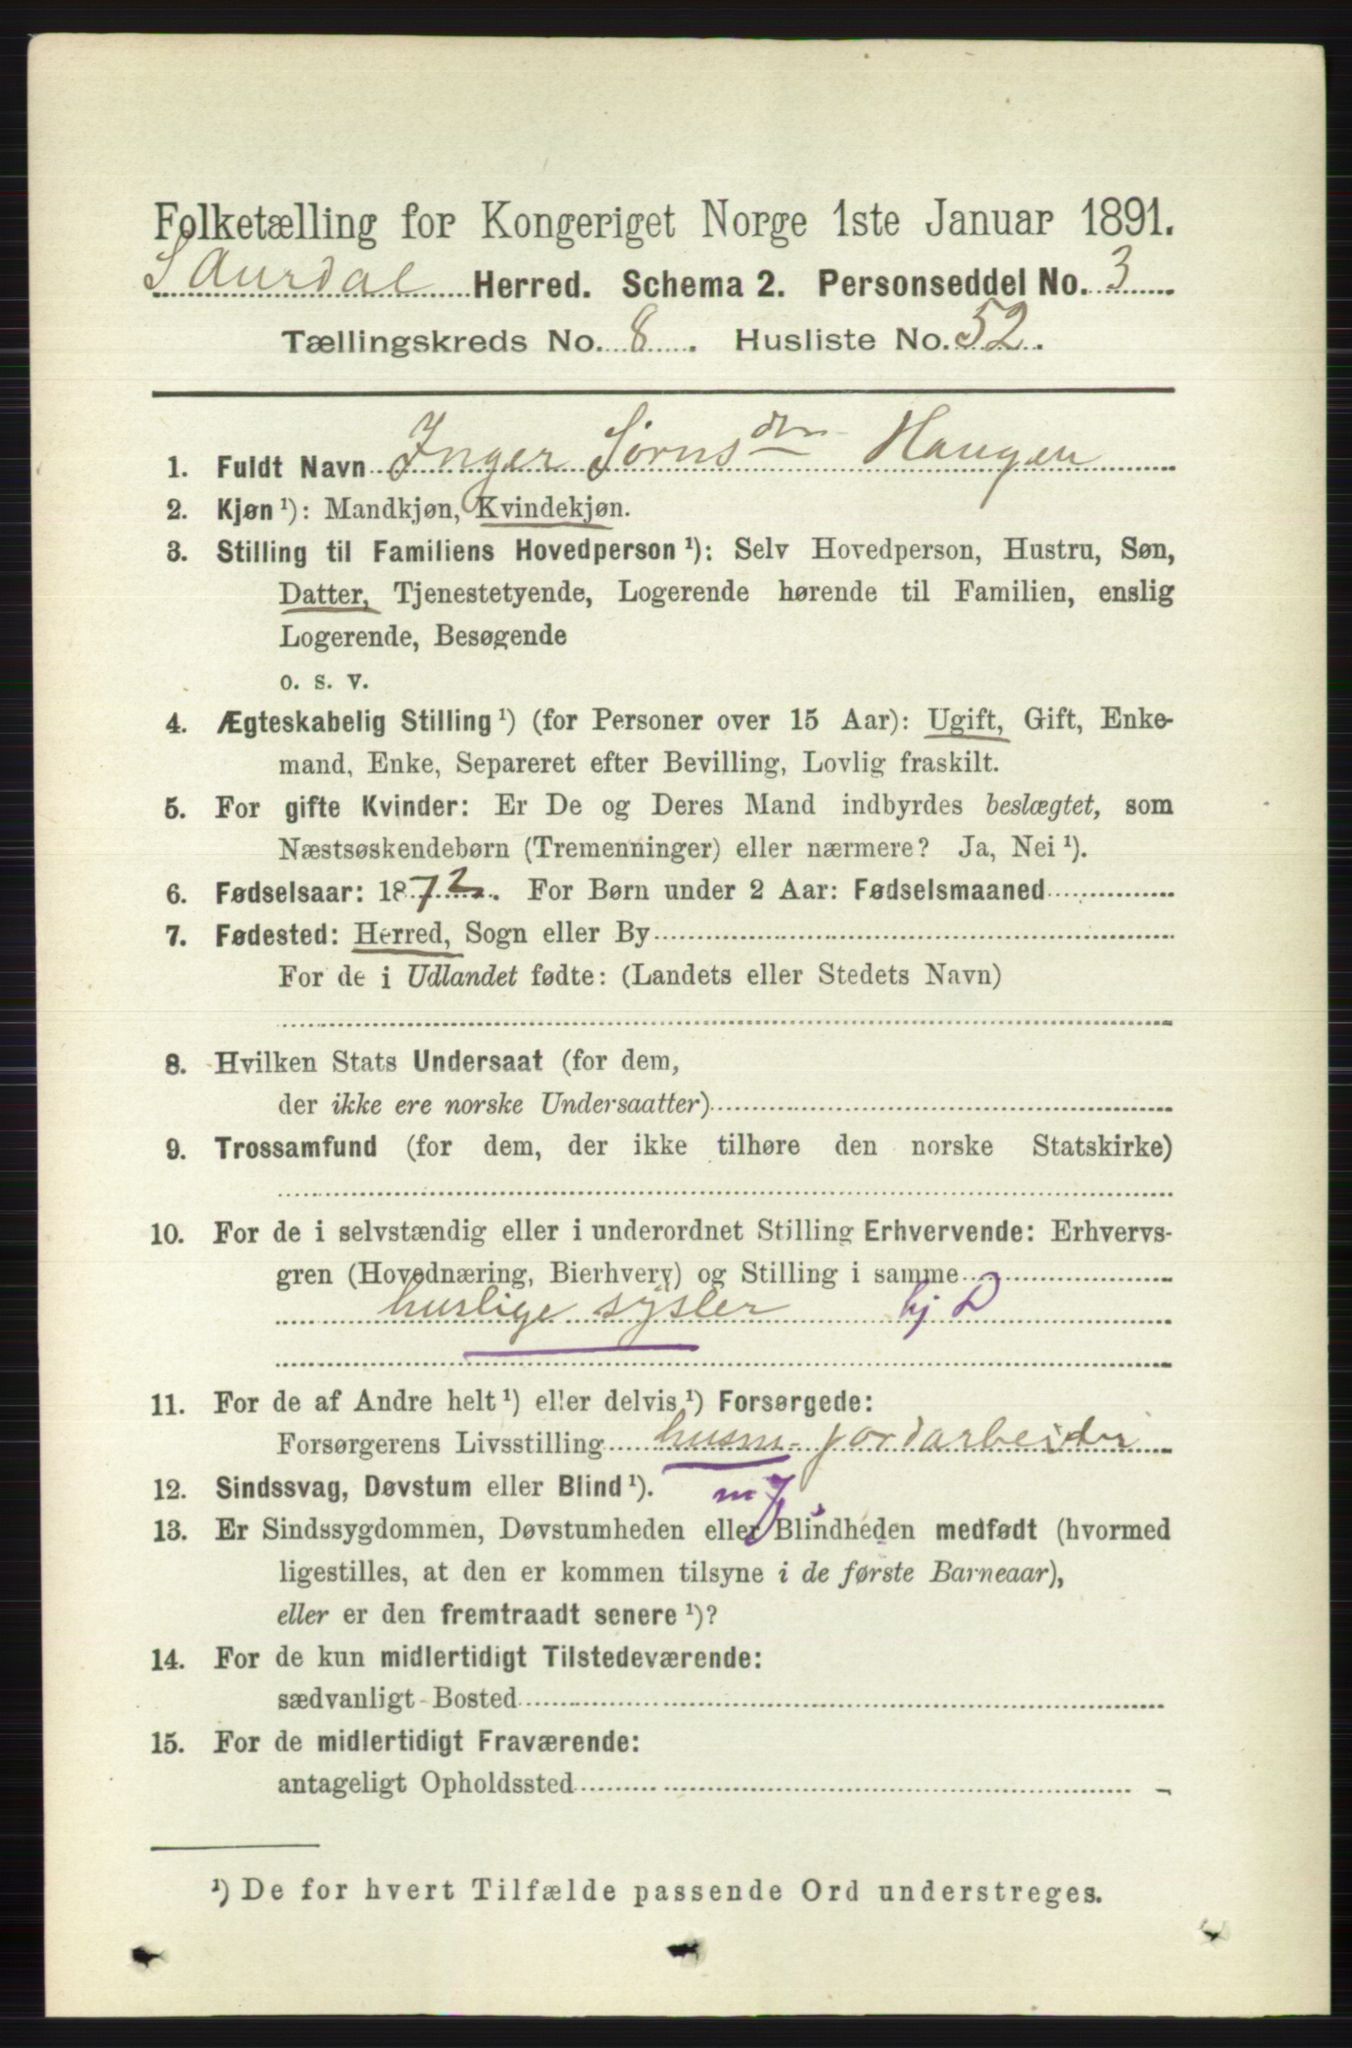 Folketælling for Kongeriget Norge 1ste Januar 1891.
S Aurdal Herred. Schema 2. Personseddel No. 3
Tællingskreds No. 8. Husliste No. 52.
1. Fuldt Navn Inger Sørnsdtr Haugen
2. Kjøn ¹): Mandkjøn, Kvindekjøn.
3. Stilling til Familiens Hovedperson ¹): Selv Hovedperson, Hustru, Søn,
Datter, Tjenestetyende, Logerende hørende til Familien, enslig
Logerende, Besøgende
o. s. v.
4. Ægteskabelig Stilling ¹) (for Personer over 15 Aar): Ugift, Gift, Enke-
mand, Enke, Separeret efter Bevilling, Lovlig fraskilt.
5. For gifte Kvinder: Er De og Deres Mand indbyrdes beslægtet, som
Næstsøskendebørn (Tremenninger) eller nærmere? Ja, Nei ¹).
6. Fødselsaar: 1872. For Børn under 2 Aar: Fødselsmaaned
7. Fødested: Herred, Sogn eller By
For de i Udlandet fødte: (Landets eller Stedets Navn)
8. Hvilken Stats Undersaat (for dem,
der ikke ere norske Undersaatter)
9. Trossamfund (for dem, der ikke tilhøre den norske Statskirke)
10. For de i selvstændig eller i underordnet Stilling Erhvervende: Erhvervs-
gren (Hovednæring, Bierhverv) og Stilling i samme
huslige sysler hj D
11. For de af Andre helt ¹) eller delvis ¹) Forsørgede:
Forsørgerens Livsstilling husm. jordarbeider
12. Sindssvag, Døvstum eller Blind ¹). m J
13. Er Sindssygdommen, Døvstumheden eller Blindheden medfødt (hvormed
ligestilles, at den er kommen tilsyne i de første Barneaar),
eller er den fremtraadt senere ¹)?
14. For de kun midlertidigt Tilstedeværende:
sædvanligt Bosted
15. For de midlertidigt Fraværende:
antageligt Opholdssted
¹) De for hvert Tilfælde passende Ord understreges.